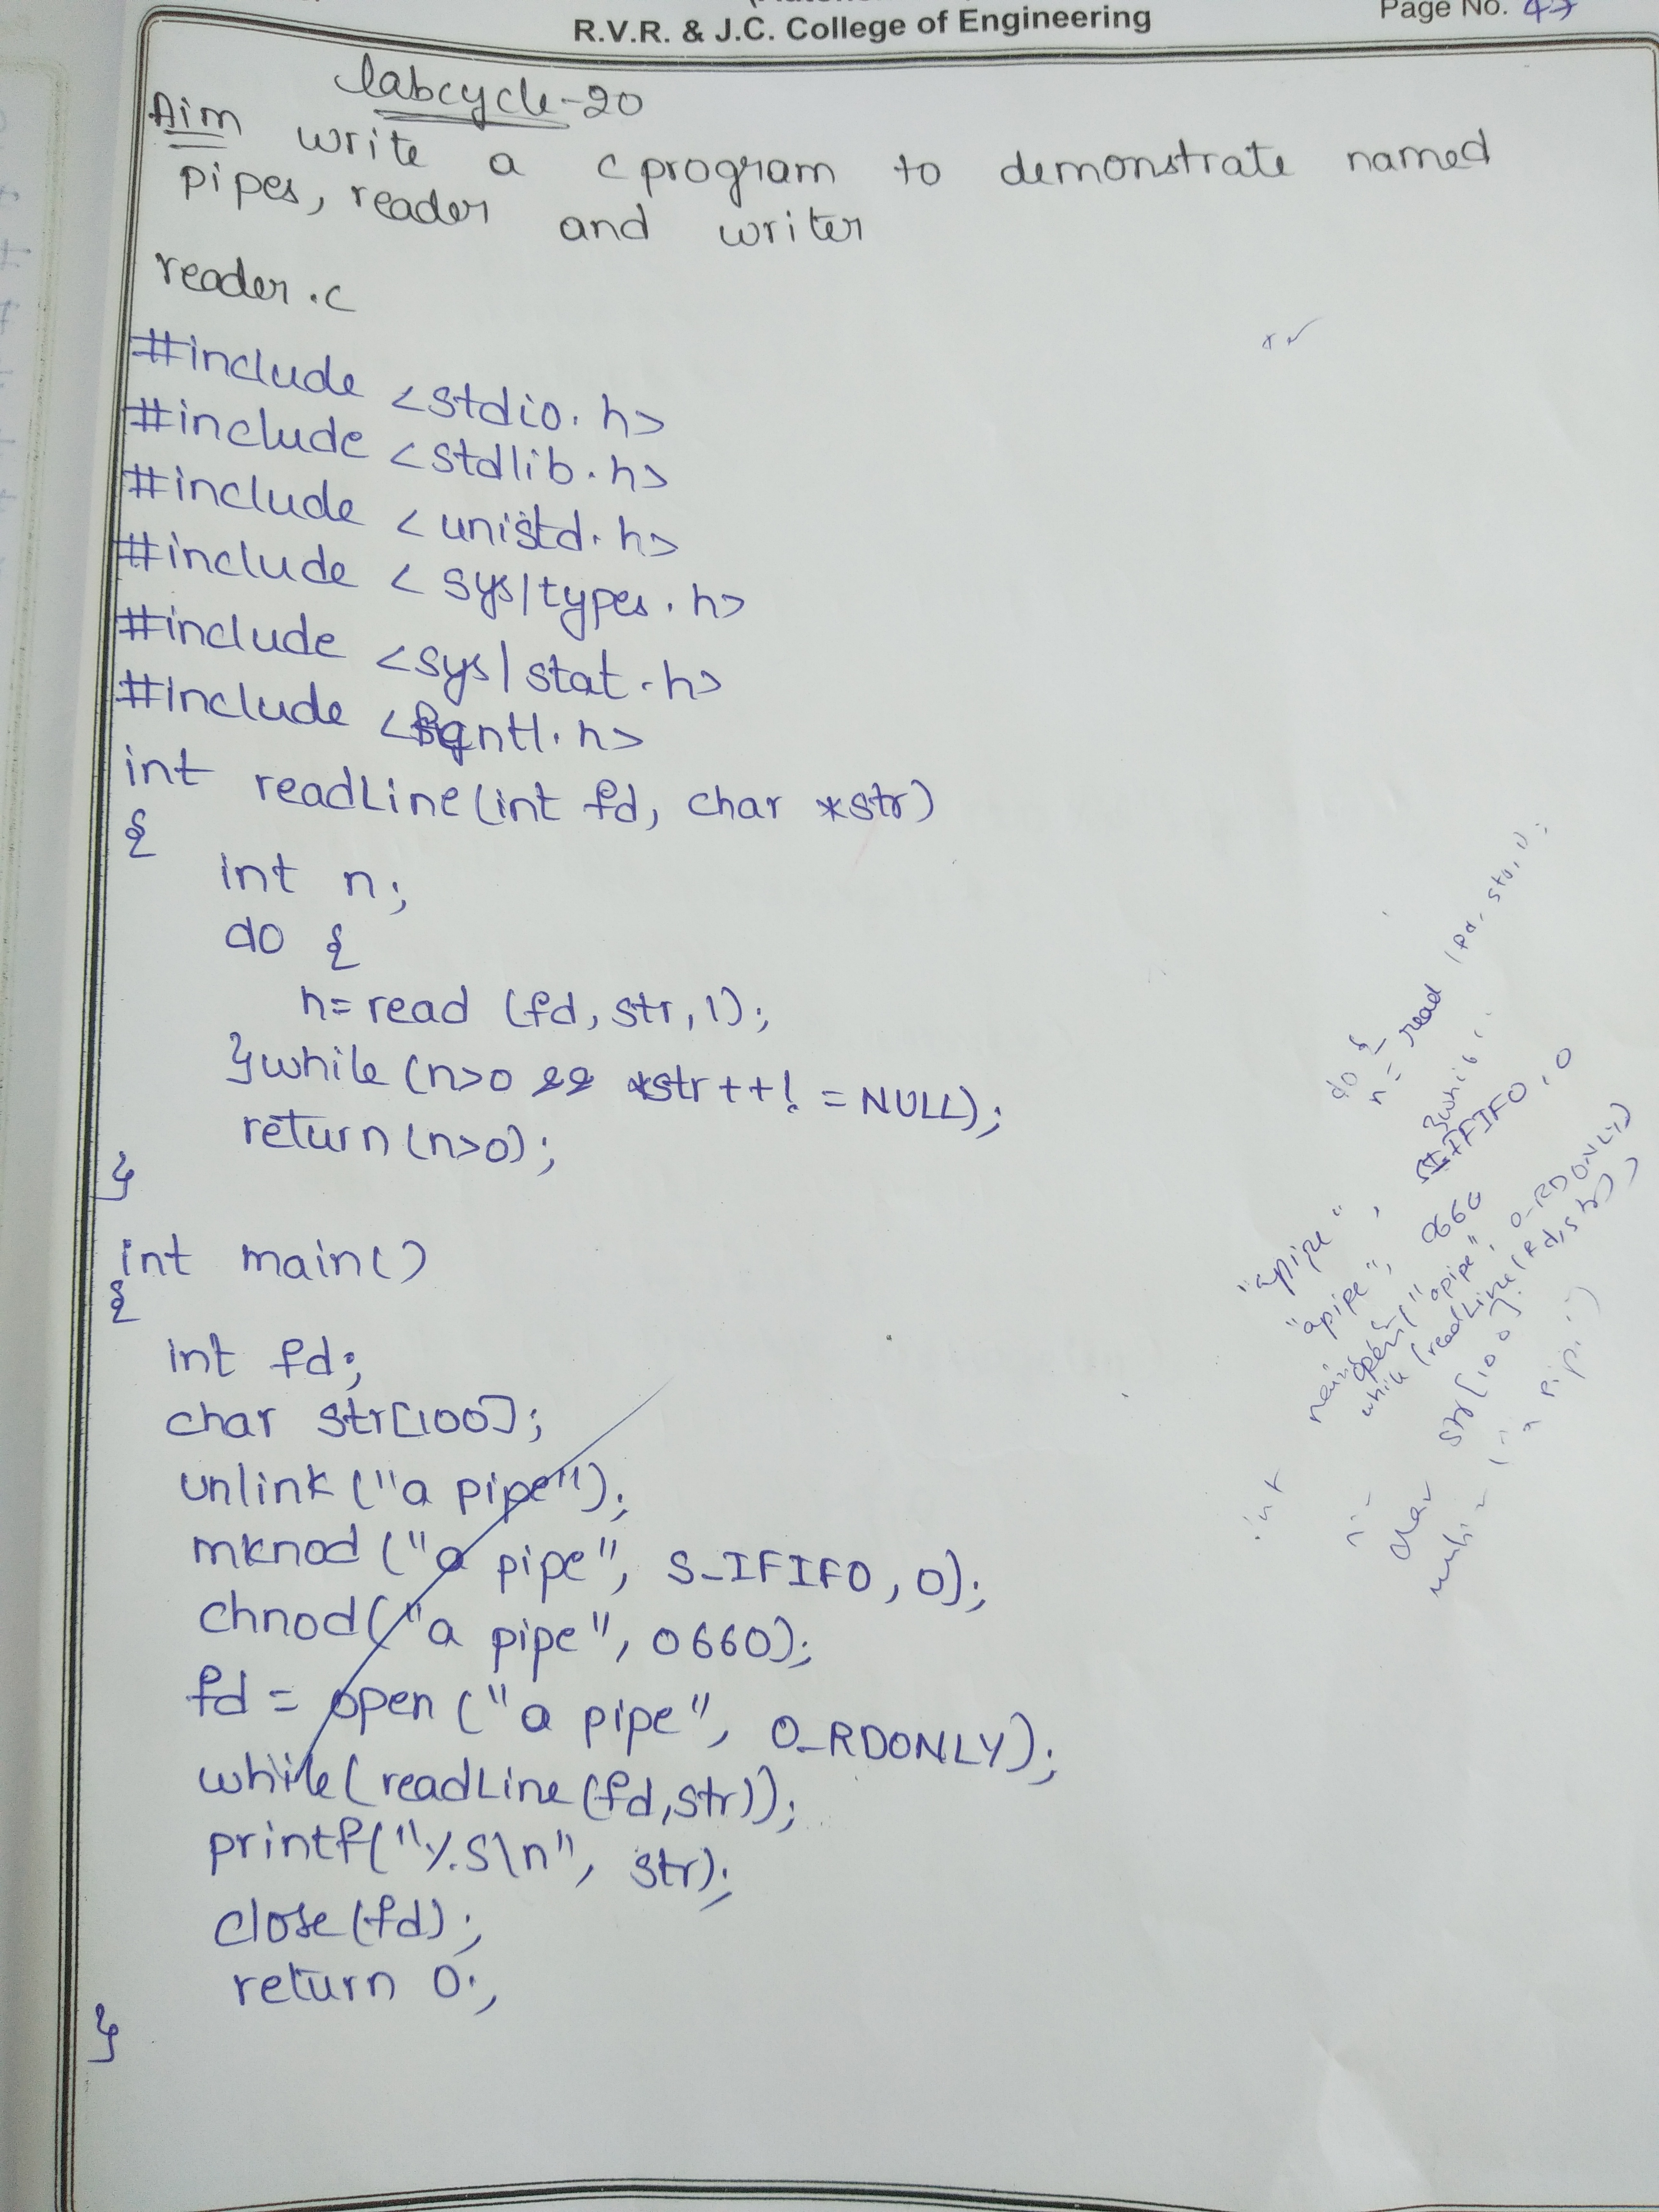 R.V.R. & J.C. College of Engineering
Page No. 47
labcycle-20
Aim write a c program to demonstrate named
pipes, reader and writer
reader.c
#include <stdio.h>
#include <stdlib.h>
#include <unistd.h>
#include <sys/types.h>
#include <sys/stat.h>
#include <fcntl.h>
int readLine(int fd, char *str)
{
int n;
do {
n=read (fd, str, 1);
}while (n>0 && *str++! = NULL);
return (n>0);
}
int main()
{
int fd;
char str[100];
unlink ("a pipe");
mknod ("a pipe", S_IFIFO, 0);
chnod ("a pipe", 0660);
fd = open ("a pipe", O_RDONLY);
while(readLine (fd,str));
printf("%s\n", str);
close (fd);
return 0;
}
do {
n = read (fd, str, 1);
"apipe", S_IFIFO, 0
"apipe", 0660
open(" apipe", O_RDONLY)
while (readLine(fd,str))
str[100];
int
char